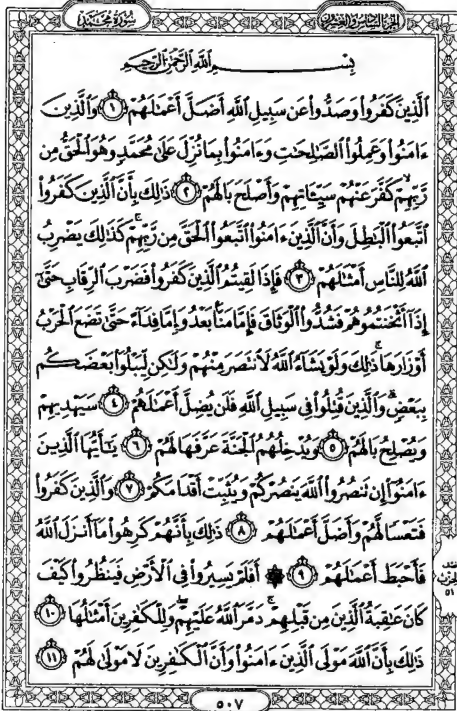 سُورَةُ مُحَمَّدٍ
الجُزْءُ السَّادِسُ وَالعِشْرُونَ
بِسْمِ اللَّهِ الرَّحْمَٰنِ الرَّحِيمِ
الَّذِينَ كَفَرُوا وَصَدُّوا عَن سَبِيلِ اللَّهِ أَضَلَّ أَعْمَٰلَهُمْ ١ وَالَّذِينَ
ءَامَنُوا وَعَمِلُوا الصَّٰلِحَٰتِ وَءَامَنُوا بِمَا نُزِّلَ عَلَىٰ مُحَمَّدٍ وَهُوَ الْحَقُّ مِن
رَّبِّهِمْ كَفَّرَ عَنْهُمْ سَيِّـَٔاتِهِمْ وَأَصْلَحَ بَالَهُمْ ٢ ذَٰلِكَ بِأَنَّ الَّذِينَ كَفَرُوا
اتَّبَعُوا الْبَٰطِلَ وَأَنَّ الَّذِينَ ءَامَنُوا اتَّبَعُوا الْحَقَّ مِن رَّبِّهِمْ كَذَٰلِكَ يَضْرِبُ
اللَّهُ لِلنَّاسِ أَمْثَٰلَهُمْ ٣ فَإِذَا لَقِيتُمُ الَّذِينَ كَفَرُوا فَضَرْبَ الرِّقَابِ حَتَّىٰٓ
إِذَآ أَثْخَنتُمُوهُمْ فَشُدُّوا الْوَثَاقَ فَإِمَّا مَنًّا بَعْدُ وَإِمَّا فِدَآءً حَتَّىٰ تَضَعَ الْحَرْبُ
أَوْزَارَهَا ذَٰلِكَ وَلَوْ يَشَآءُ اللَّهُ لَانتَصَرَ مِنْهُمْ وَلَٰكِن لِّيَبْلُوَا بَعْضَكُم
بِبَعْضٍ وَالَّذِينَ قُتِلُوا فِي سَبِيلِ اللَّهِ فَلَن يُضِلَّ أَعْمَٰلَهُمْ ٤ سَيَهْدِيهِمْ
وَيُصْلِحُ بَالَهُمْ ٥ وَيُدْخِلُهُمُ الْجَنَّةَ عَرَّفَهَا لَهُمْ ٦ يَٰٓأَيُّهَا الَّذِينَ
ءَامَنُوٓا إِن تَنصُرُوا اللَّهَ يَنصُرْكُمْ وَيُثَبِّتْ أَقْدَامَكُمْ ٧ وَالَّذِينَ كَفَرُوا
فَتَعْسًا لَّهُمْ وَأَضَلَّ أَعْمَٰلَهُمْ ٨ ذَٰلِكَ بِأَنَّهُمْ كَرِهُوا مَآ أَنزَلَ اللَّهُ
فَأَحْبَطَ أَعْمَٰلَهُمْ ٩ ۞ أَفَلَمْ يَسِيرُوا فِي الْأَرْضِ فَيَنظُرُوا كَيْفَ
كَانَ عَٰقِبَةُ الَّذِينَ مِن قَبْلِهِمْ دَمَّرَ اللَّهُ عَلَيْهِمْ وَلِلْكَٰفِرِينَ أَمْثَٰلُهَا ١٠
ذَٰلِكَ بِأَنَّ اللَّهَ مَوْلَى الَّذِينَ ءَامَنُوا وَأَنَّ الْكَٰفِرِينَ لَا مَوْلَىٰ لَهُمْ ١١
الحِزْبُ
٥١
٥٠٧